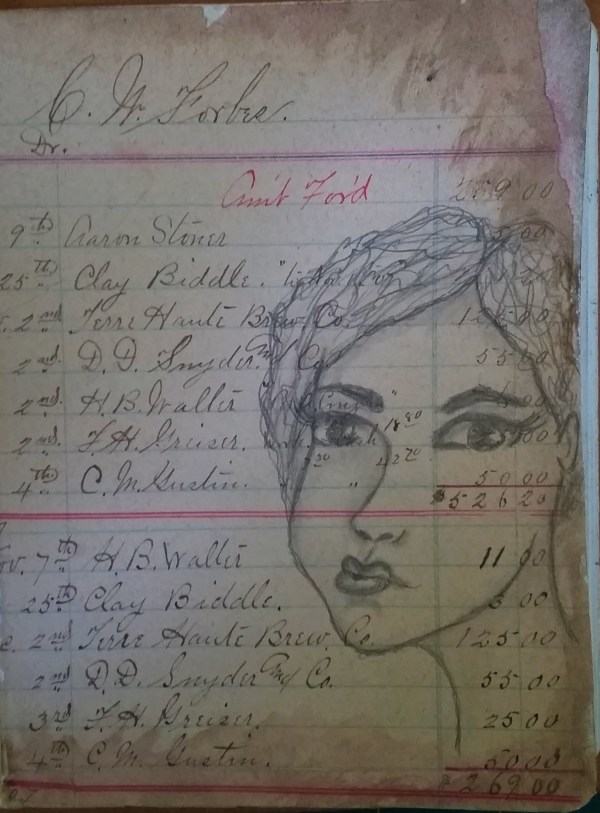 C. W. Forbes.
Dr.
Am't For'd 2 9 00
9th Aaron Stoner 00
25th Clay Biddle.
2nd Terre Haute Brew. Co. 1 00
2nd D. D. Snyder and Co. 55 00
2nd H. B. Waller 00
2nd F. H. Greiser. 00
4th C. M. Gustin. " 50 00
$526 20
ov. 7th H. B. Waller 11 00
25th Clay Biddle. 3 00
c. 2nd Terre Haute Brew. Co. 125 00
2nd D. D. Snyder and Co. 55 00
3rd F. H. Greiser. 25 00
4th C. M. Gustin. 50 00
$269 00